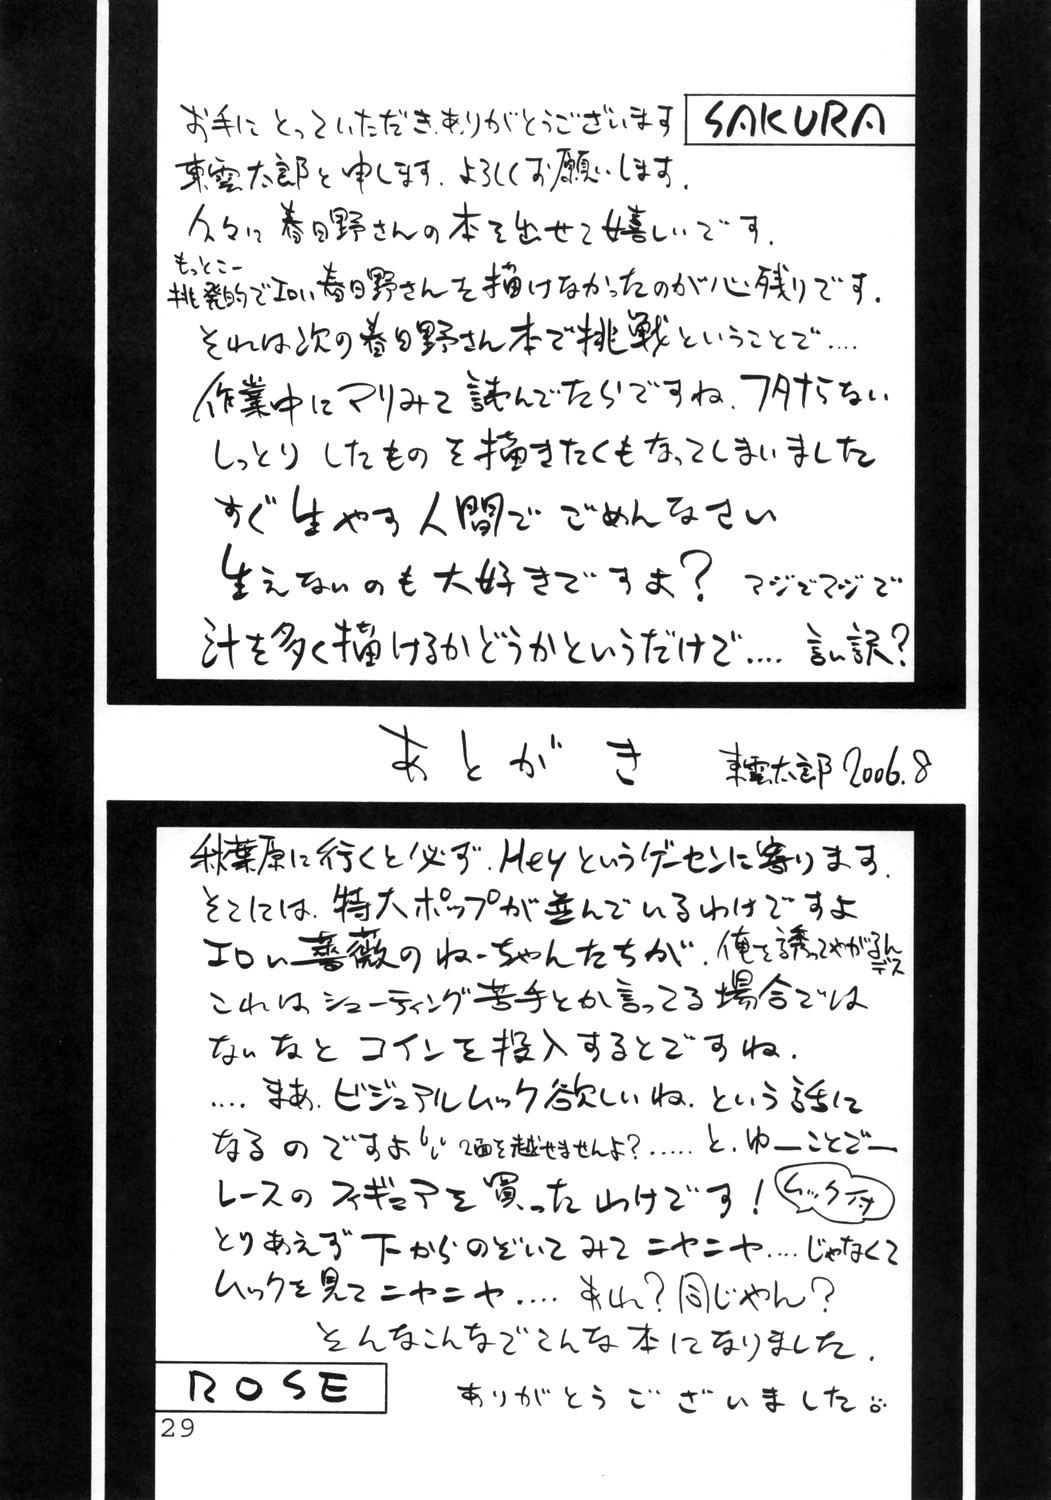 SAKURA
お手にとっていただき、ありがとうございます
東雲太郎と申します、よろしくお願いします。
久々に春日野さんの本を出せて嬉しいです。
もっとこー
挑発的でエロい春日野さんを描けなかったのが心残りです。
それは次の春日野さん本で挑戦ということで‥‥
作業中にマリみて読んでたらですね、フタナらない
しっとりしたものを描きたくもなってしまいました
すぐ生やす人間でごめんなさい
生えないのも大好きですよ? マジでマジで
汁を多く描けるかどうかというだけで‥‥ 言い訳?
あとがき 東雲太郎 2006.8
秋葉原に行くと必ず、Heyというゲーセンに寄ります。
そこには、特大ポップが並んでいるわけですよ
エロい薔薇のねーちゃんたちが、俺を誘ってやがるんデス
これはシューティング苦手とか言ってる場合では
ないなと コインを投入するとですね、
‥‥まあ、ビジュアルムック欲しいね、という話に
なるのですよ 2面を越せませんよ?‥‥‥と、ゆーことでー
レースのフィギュアを買ったわけです! ムック付
とりあえず下からのぞいてみてニヤニヤ‥‥じゃなくて
ムックを見てニヤニヤ‥‥ あれ?同じやん?
そんなこんなでこんな本になりました。
ROSE
ありがとうございました
29